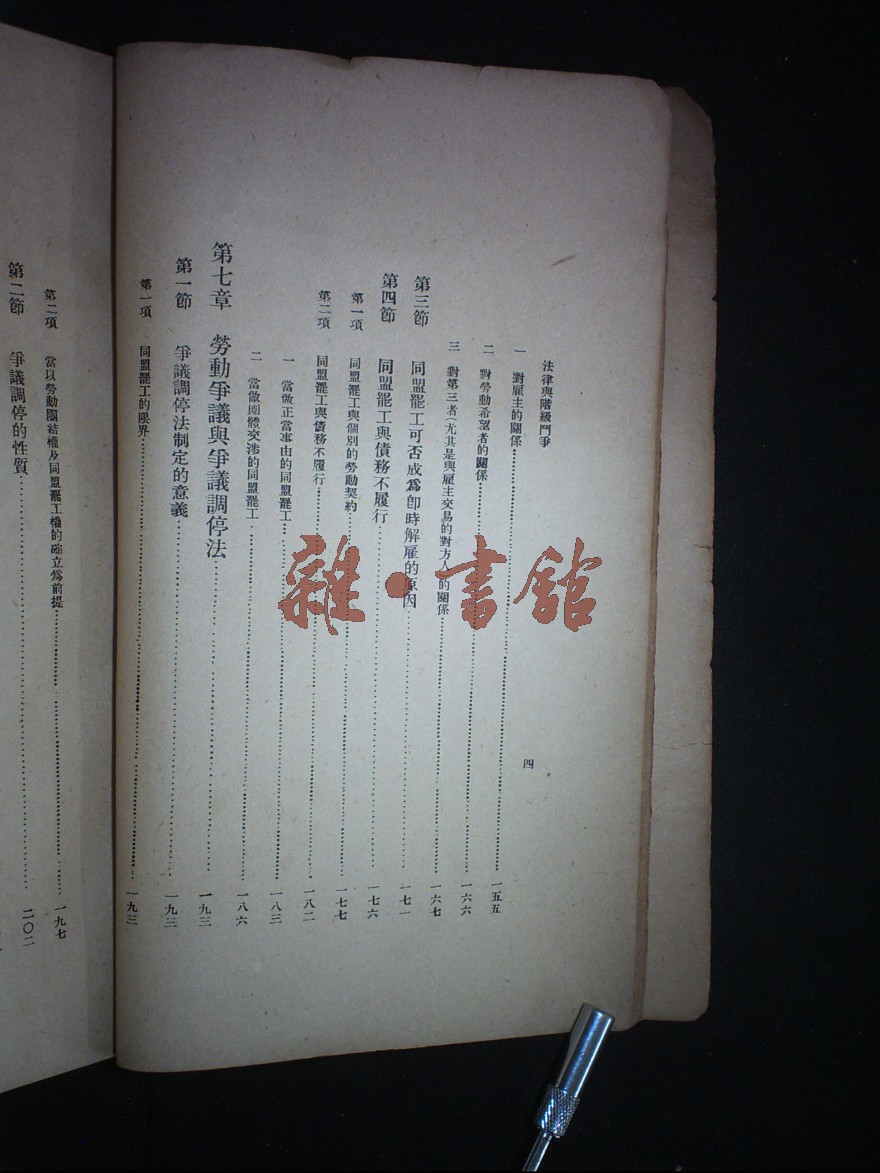 法律與階級鬥爭
四
一 對雇主的關係 一五五
二 對勞動希望者的關係 一六六
三 對第三者、尤其是與雇主交易的對方人的關係 一六七
第三節 同盟罷工可否成為卽時解雇的原因 一七一
第四節 同盟罷工與債務不履行 一七六
第一項 同盟罷工與個別的勞動契約 一七七
第二項 同盟罷工與債務不履行 一八二
一 當做正當事由的同盟罷工 一八三
二 當做團體交涉的同盟罷工 一八六
第七章 勞動爭議與爭議調停法 一九三
第一節 爭議調停法制定的意義 一九三
第一項 同盟罷工的限界 一九三
第二項 當以勞動團結權及同盟罷工權的確立為前提 一九七
第二節 爭議調停的性質 二〇二
雜·書館